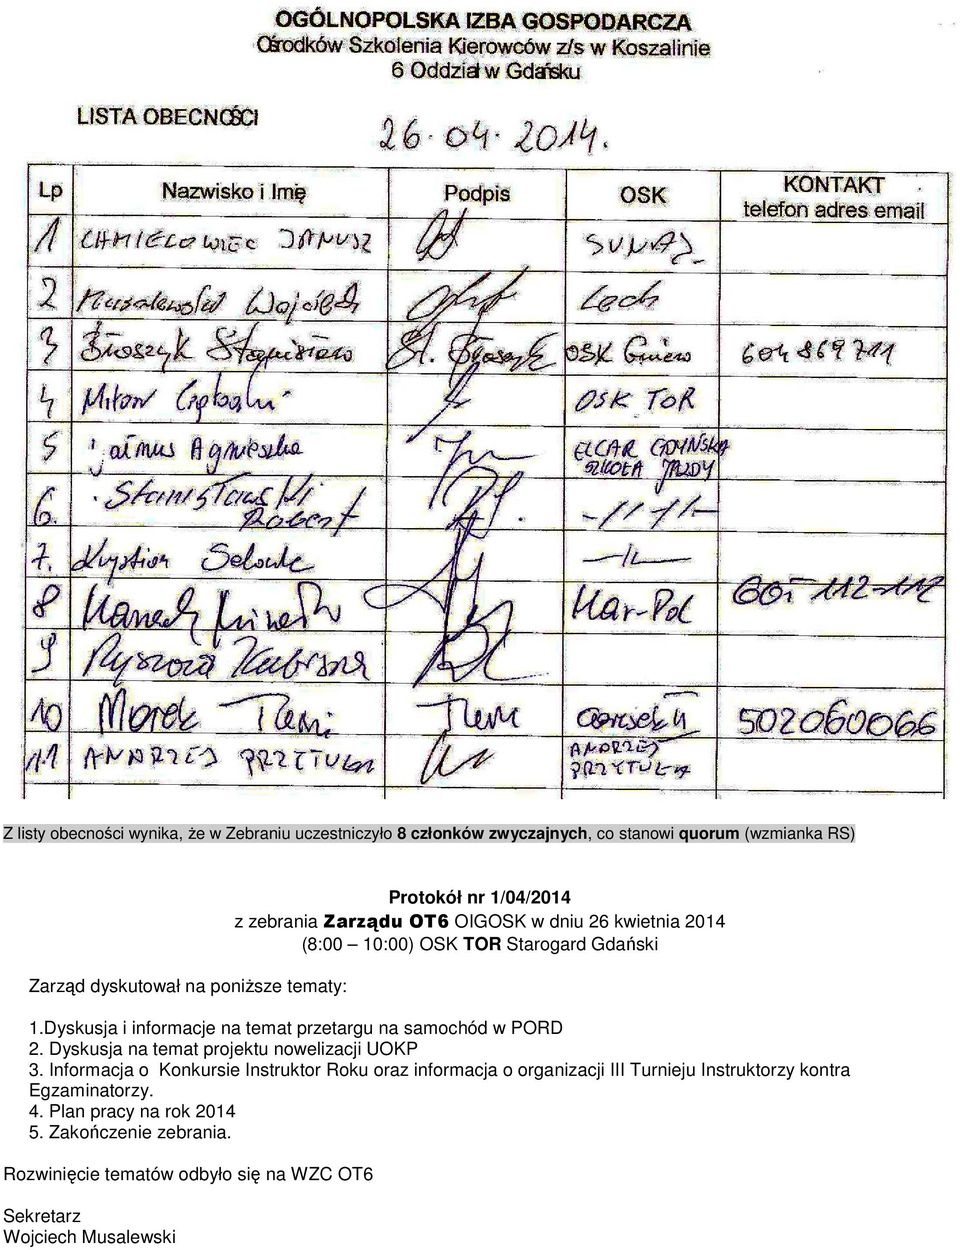 OGÓLNOPOLSKA IZBA GOSPODARCZA
Ośrodków Szkolenia Kierowców z/s w Koszalinie
6 Oddział w Gdańsku
LISTA OBECNOŚCI
26.04.2014.
Lp Nazwisko i Imię Podpis OSK KONTAKT telefon adres email
1 CHMIELOWIEC JANUSZ
2 Musalewski Wojciech Lech
3 Stanisław St. OSK Gniew 604 869 711
4 Miłow OSK TOR
5 Agnieszka ELCAR GDYŃSKA SZKOŁA JAZDY
6. Stanisławski Robert -//-//-
7. Krystian -//-
8 Mar-Pol 601-112-112
9 Ryszard
10 Marek 502060066
11 ANDRZEJ PRZYTUŁA ANDRZEJ PRZYTUŁA
Z listy obecności wynika, że w Zebraniu uczestniczyło 8 członków zwyczajnych, co stanowi quorum (wzmianka RS)
Protokół nr 1/04/2014
z zebrania Zarządu OT6 OIGOSK w dniu 26 kwietnia 2014
(8:00 – 10:00) OSK TOR Starogard Gdański
Zarząd dyskutował na poniższe tematy:
1.Dyskusja i informacje na temat przetargu na samochód w PORD
2. Dyskusja na temat projektu nowelizacji UOKP
3. Informacja o Konkursie Instruktor Roku oraz informacja o organizacji III Turnieju Instruktorzy kontra
Egzaminatorzy.
4. Plan pracy na rok 2014
5. Zakończenie zebrania.
Rozwinięcie tematów odbyło się na WZC OT6
Sekretarz
Wojciech Musalewski